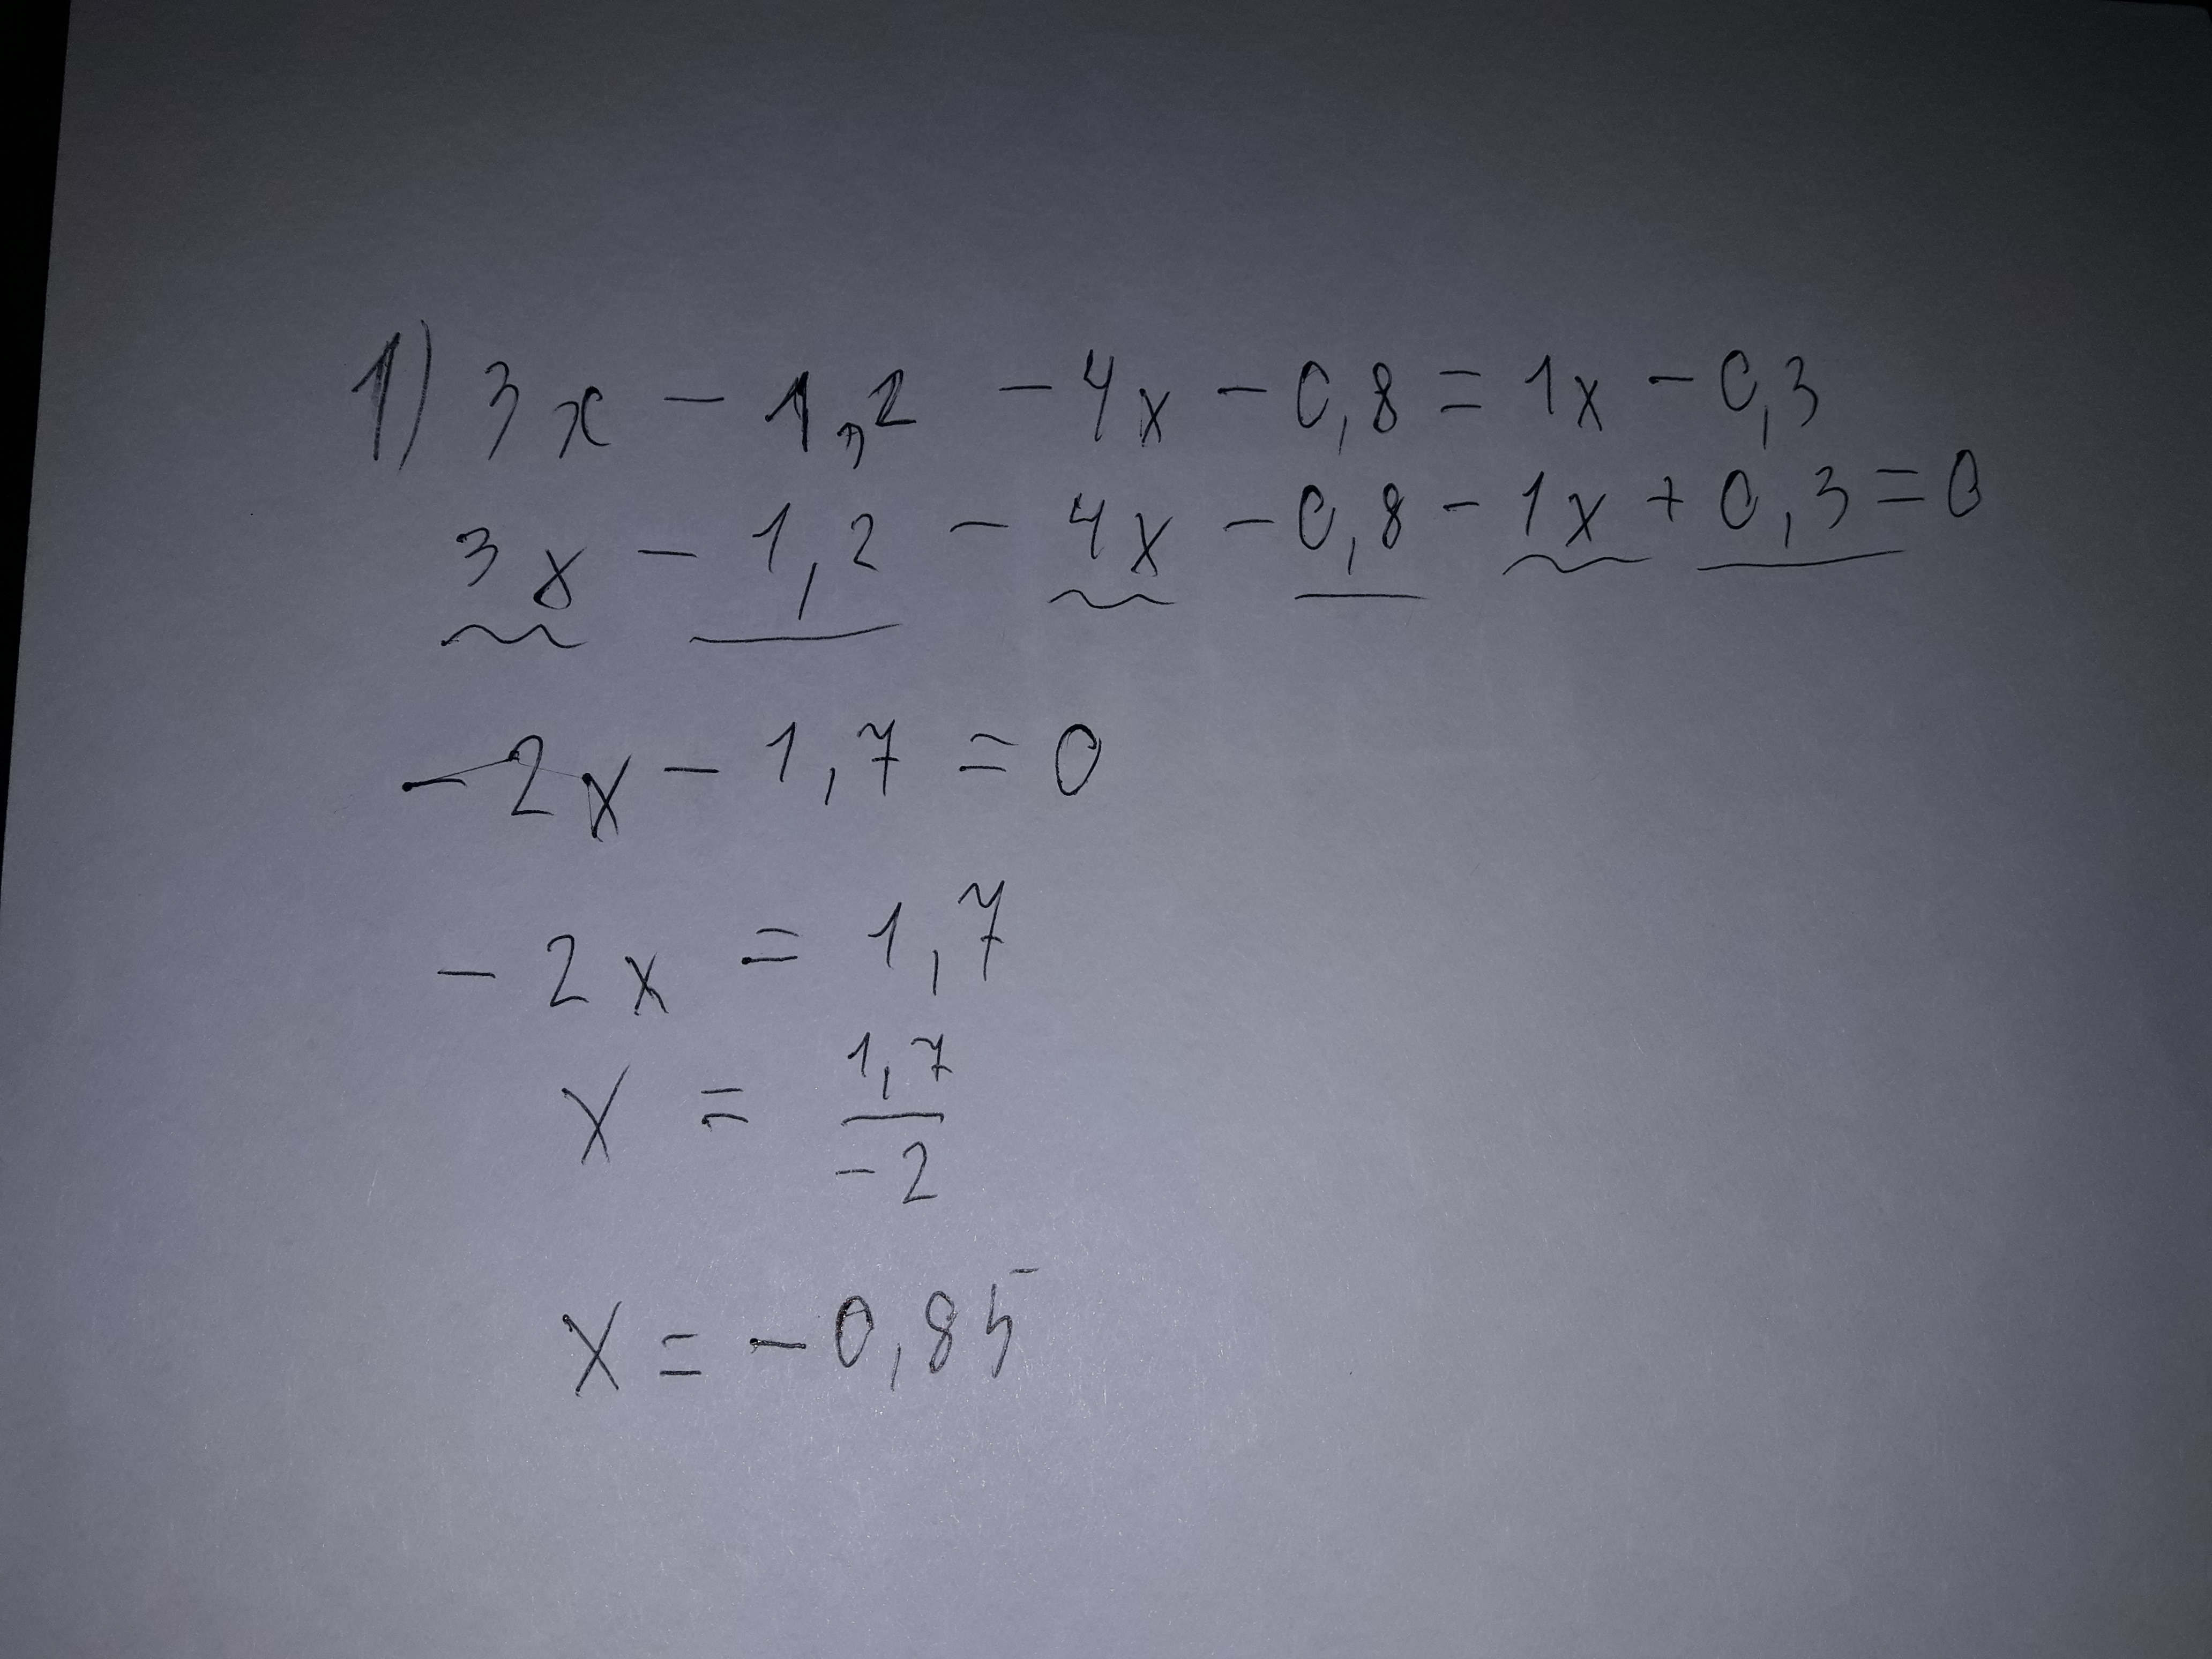 1) 3x - 1,2 - 4x - 0,8 = 1x - 0,3
3x - 1,2 - 4x - 0,8 - 1x + 0,3 = 0
-2x - 1,7 = 0
-2x = 1,7
x = 1,7 / -2
x = -0,85